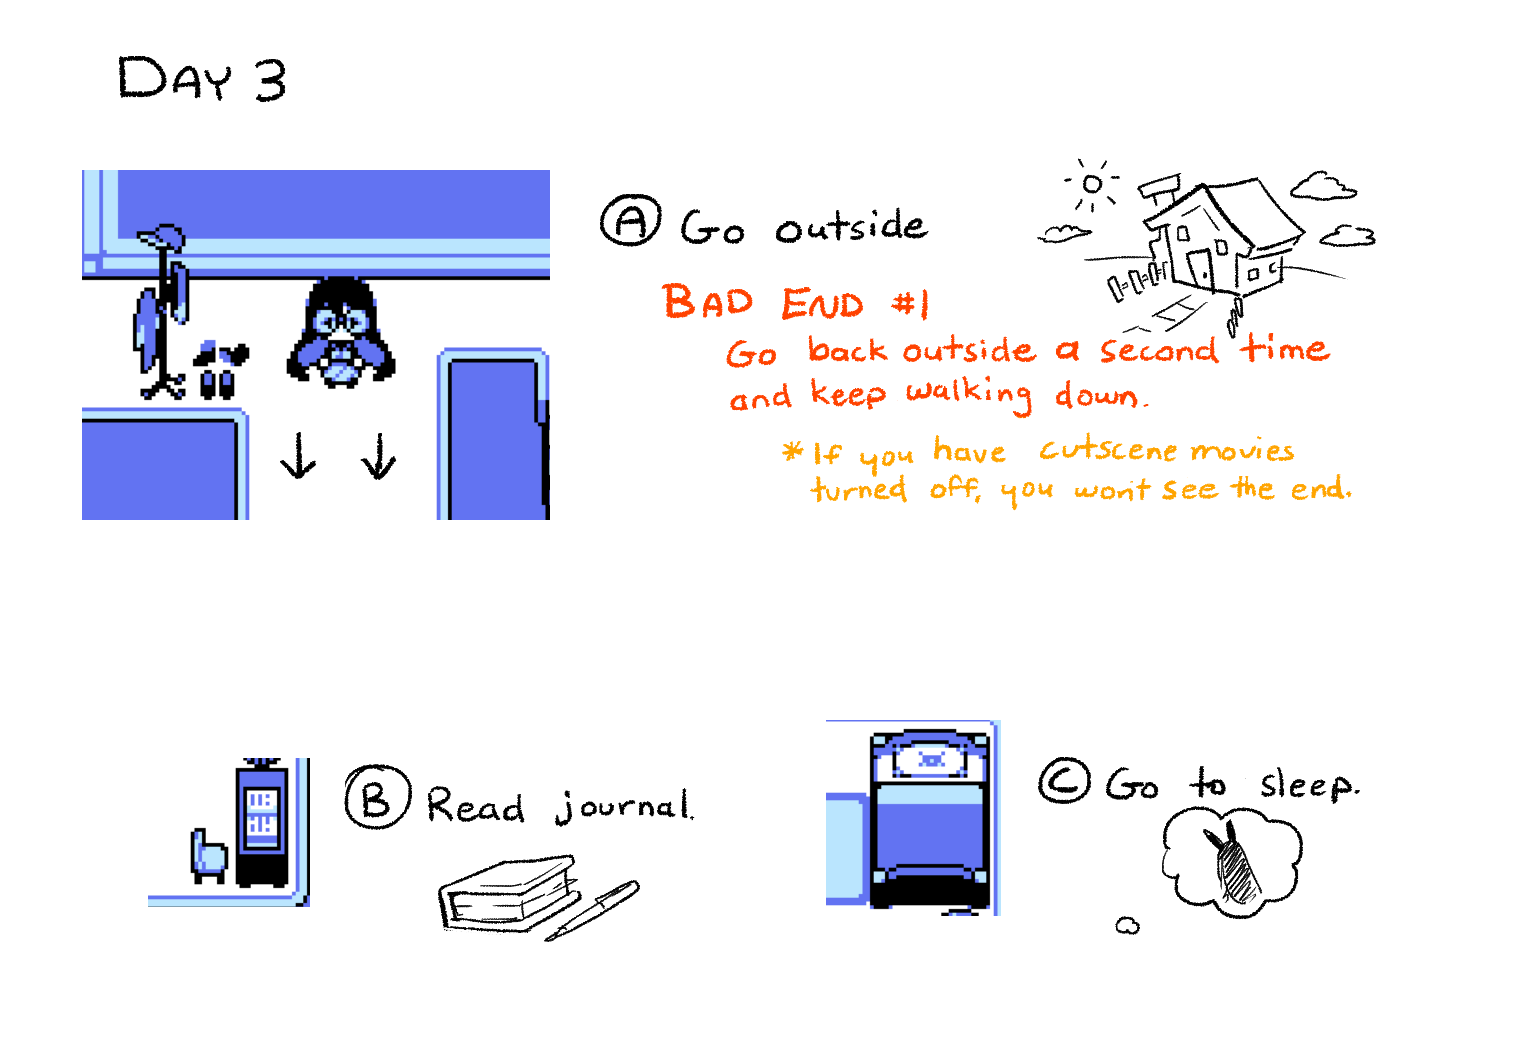 DAY 3
A Go outside
BAD END #1
Go back outside a second time
and keep walking down.
* If you have cutscene movies
turned off, you won't see the end.
B Read journal.
C Go to sleep.